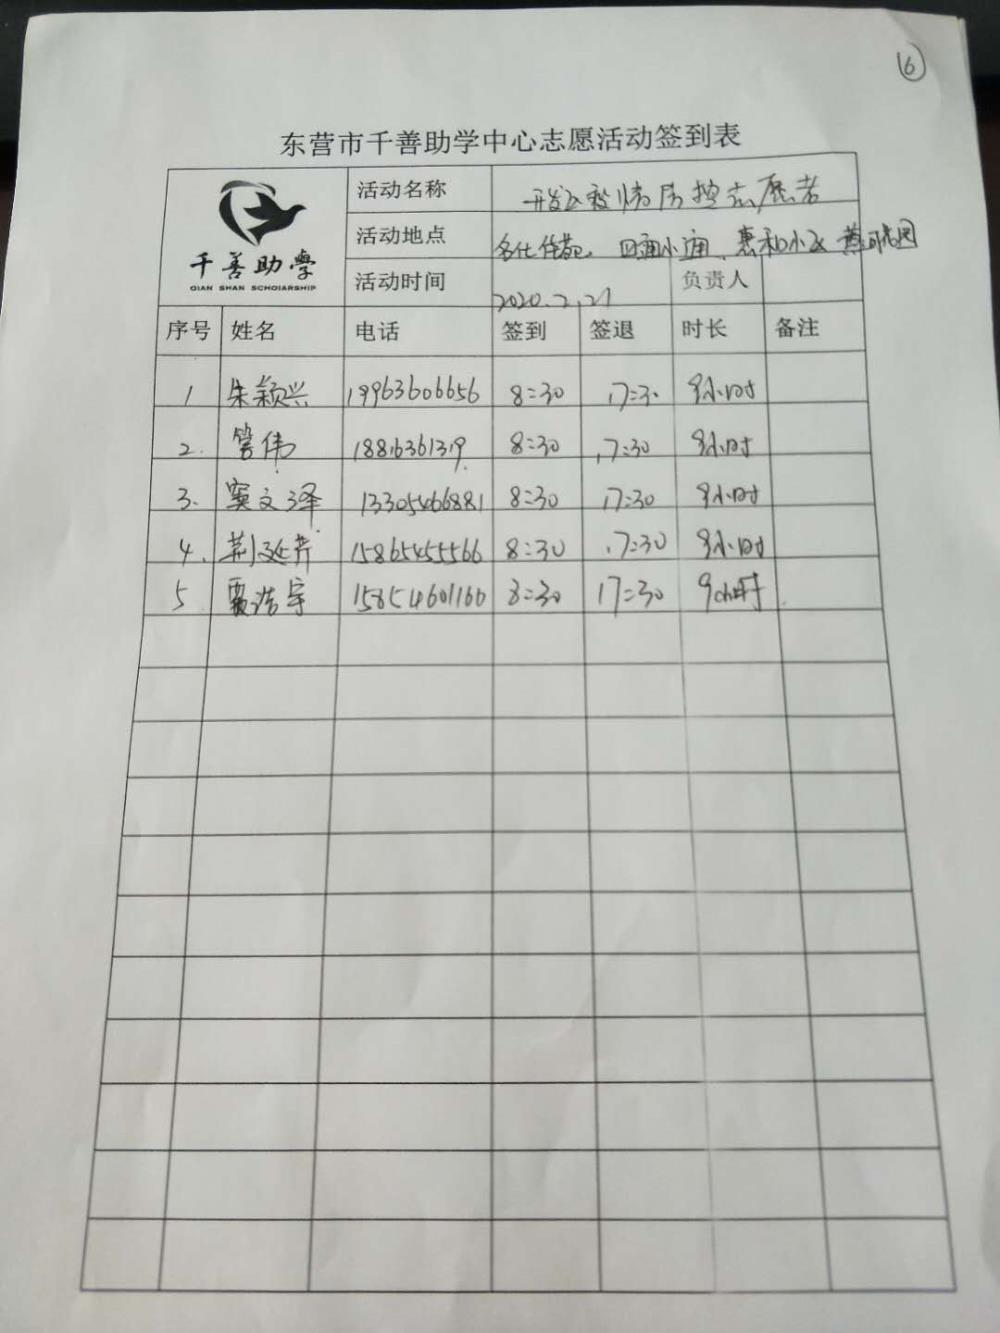 ⑥
东营市千善助学中心志愿活动签到表
千善助學
QIAN SHAN SCHOLARSHIP
活动名称 开发区疫情防控志愿者
活动地点 名仕佳苑、 惠和小区
活动时间 2020.2.21 负责人
序号 姓名 电话 签到 签退 时长 备注
1 朱颖兴 19963606656 8:30 17:30 9小时
2. 管伟 18816361319 8:30 17:30 9小时
3. 窦文泽 13305466881 8:30 17:30 9小时
4. 荆延芹 15865455566 8:30 17:30 9小时
5 浩宇 15854601160 8:30 17:30 9小时